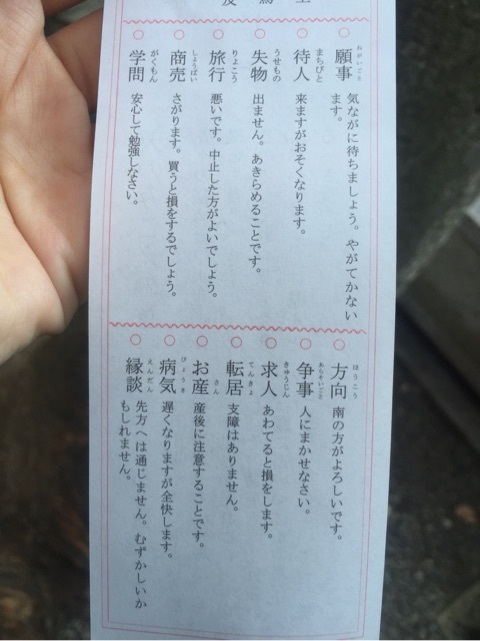 願事 ねがいごと
気ながに待ちましょう。やがてかない
ます。
待人 まちびと
来ますがおそくなります。
失物 うせもの
出ません。あきらめることです。
旅行 りょこう
悪いです。中止した方がよいでしょう。
商売 しょうばい
さがります。買うと損をするでしょう。
学問 がくもん
安心して勉強しなさい。
方向 ほうこう
南の方がよろしいです。
争事 あらそいごと
人にまかせなさい。
求人 きゅうじん
あわてると損をします。
転居 てんきょ
支障はありません。
お産 さん
産後に注意することです。
病気 びょうき
遅くなりますが全快します。
縁談 えんだん
先方へは通じません。むずかしいか
もしれません。